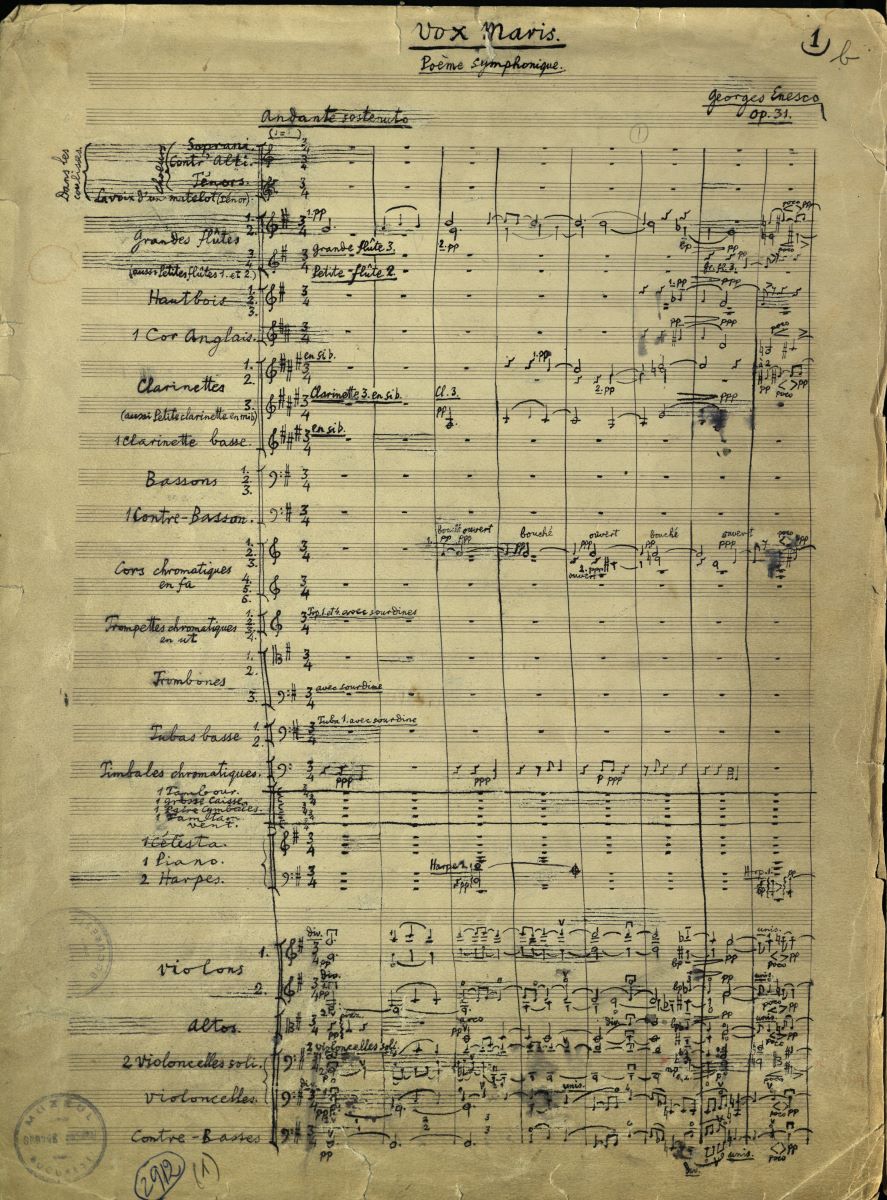 Vox Maris.
1
b
Poème Symphonique.
Georges Enesco
Op. 31.
Andante sostenuto
(♩= )
Dans les coulisses.
Choeurs
Soprani.
Contr'Alti.
Ténors.
La voix d'un matelot (Ténor).
1.
2.
Grandes flûtes
3.
4.
(aussi Petites flûtes 1. et 2)
1. pp
2. pp
Grande flûte 3.
Petite flûte 2.
Gr. Fl. 3.
Hautbois
1.
2.
3.
1. pp
ppp
1 Cor Anglais.
pp
ppp
poco
Clarinettes
1.
2.
3.
en sib.
1. pp
2. pp
(aussi Petite clarinette en mib)
Clarinette 3. en sib.
Cl. 3.
pp
ppp
1 Clarinette basse.
en sib.
Bassons
1.
2.
3.
1 Contre-Basson.
Cors chromatiques
en fa
1.
2.
3.
4.
5.
6.
bouché ouvert
bouché
ouvert
bouché
ouvert
pp ppp
Trompettes chromatiques
en ut
1.
2.
3.
4.
Trp. 1. et 4. avec sourdines
Trombones
1.
2.
3.
avec sourdine
Tubas basse
1.
2.
Tuba 1. avec sourdine
Timbales chromatiques.
ppp
ppp
p ppp
1 Tambour.
1 Grosse Caisse.
1 Paire Cymbales.
1 Tamtam
vent.
1 Célesta.
1 Piano.
2 Harpes.
Harpe 2.
ppp
Violons
1.
2.
div.
pp
unis.
poco
div.
pp
unis.
poco
Altos.
arco
pp
div.
unis.
2 violoncelles soli.
2 violoncelles soli.
Violoncelles.
pp
unis.
Contre-Basses
pp
div.
unis.
poco
MUZEUL
2912
(1)